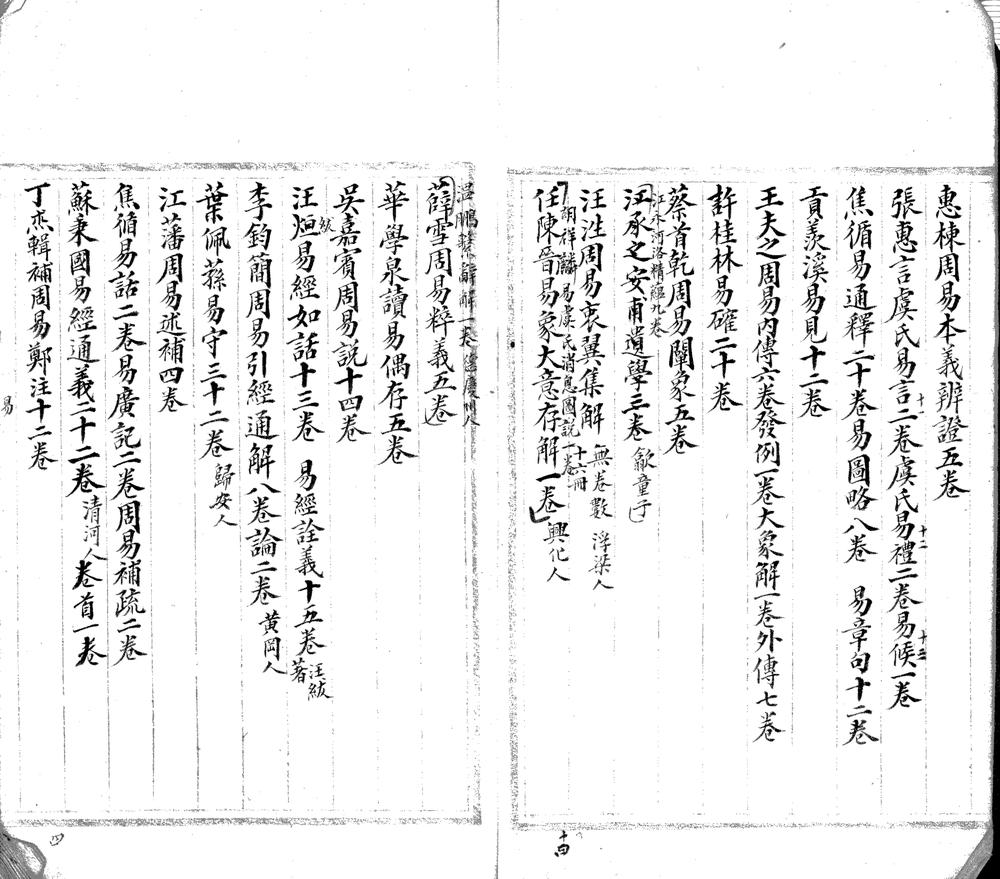 惠棟周易本義辨證五卷
張惠言虞氏易言二卷虞氏易禮二卷易候一卷
十
十二
十三
焦循易通釋二十卷易圖略八卷 易章句十二卷
貢羨溪易見十二卷
王夫之周易內傳六卷發例一卷大象解一卷外傳七卷
許桂林易確二十卷
蔡首乾周易闡象五卷
江永河洛精蘊九卷
汪承之安甫遺學三卷 歙童子
汪泩周易衷翼集解 無卷數 浮梁人
十六冊
胡祥麟易虞氏消息圖說一卷
任陳晉易象大意存解一卷 興化人
薛雪周易粹義五卷
華學泉讀易偶存五卷
吳嘉賓周易說十四卷
汪烜易經如話十三卷 易經詮義十五卷 汪紱著
紱
李鈞簡周易引經通解八卷論二卷 黃岡人
葉佩蓀易守三十二卷 歸安人
江藩周易述補四卷
焦循易話二卷易廣記二卷周易補疏二卷
蘇秉國易經通義二十二卷 清河人 卷首一卷
丁杰輯補周易鄭注十二卷
易
十四
四